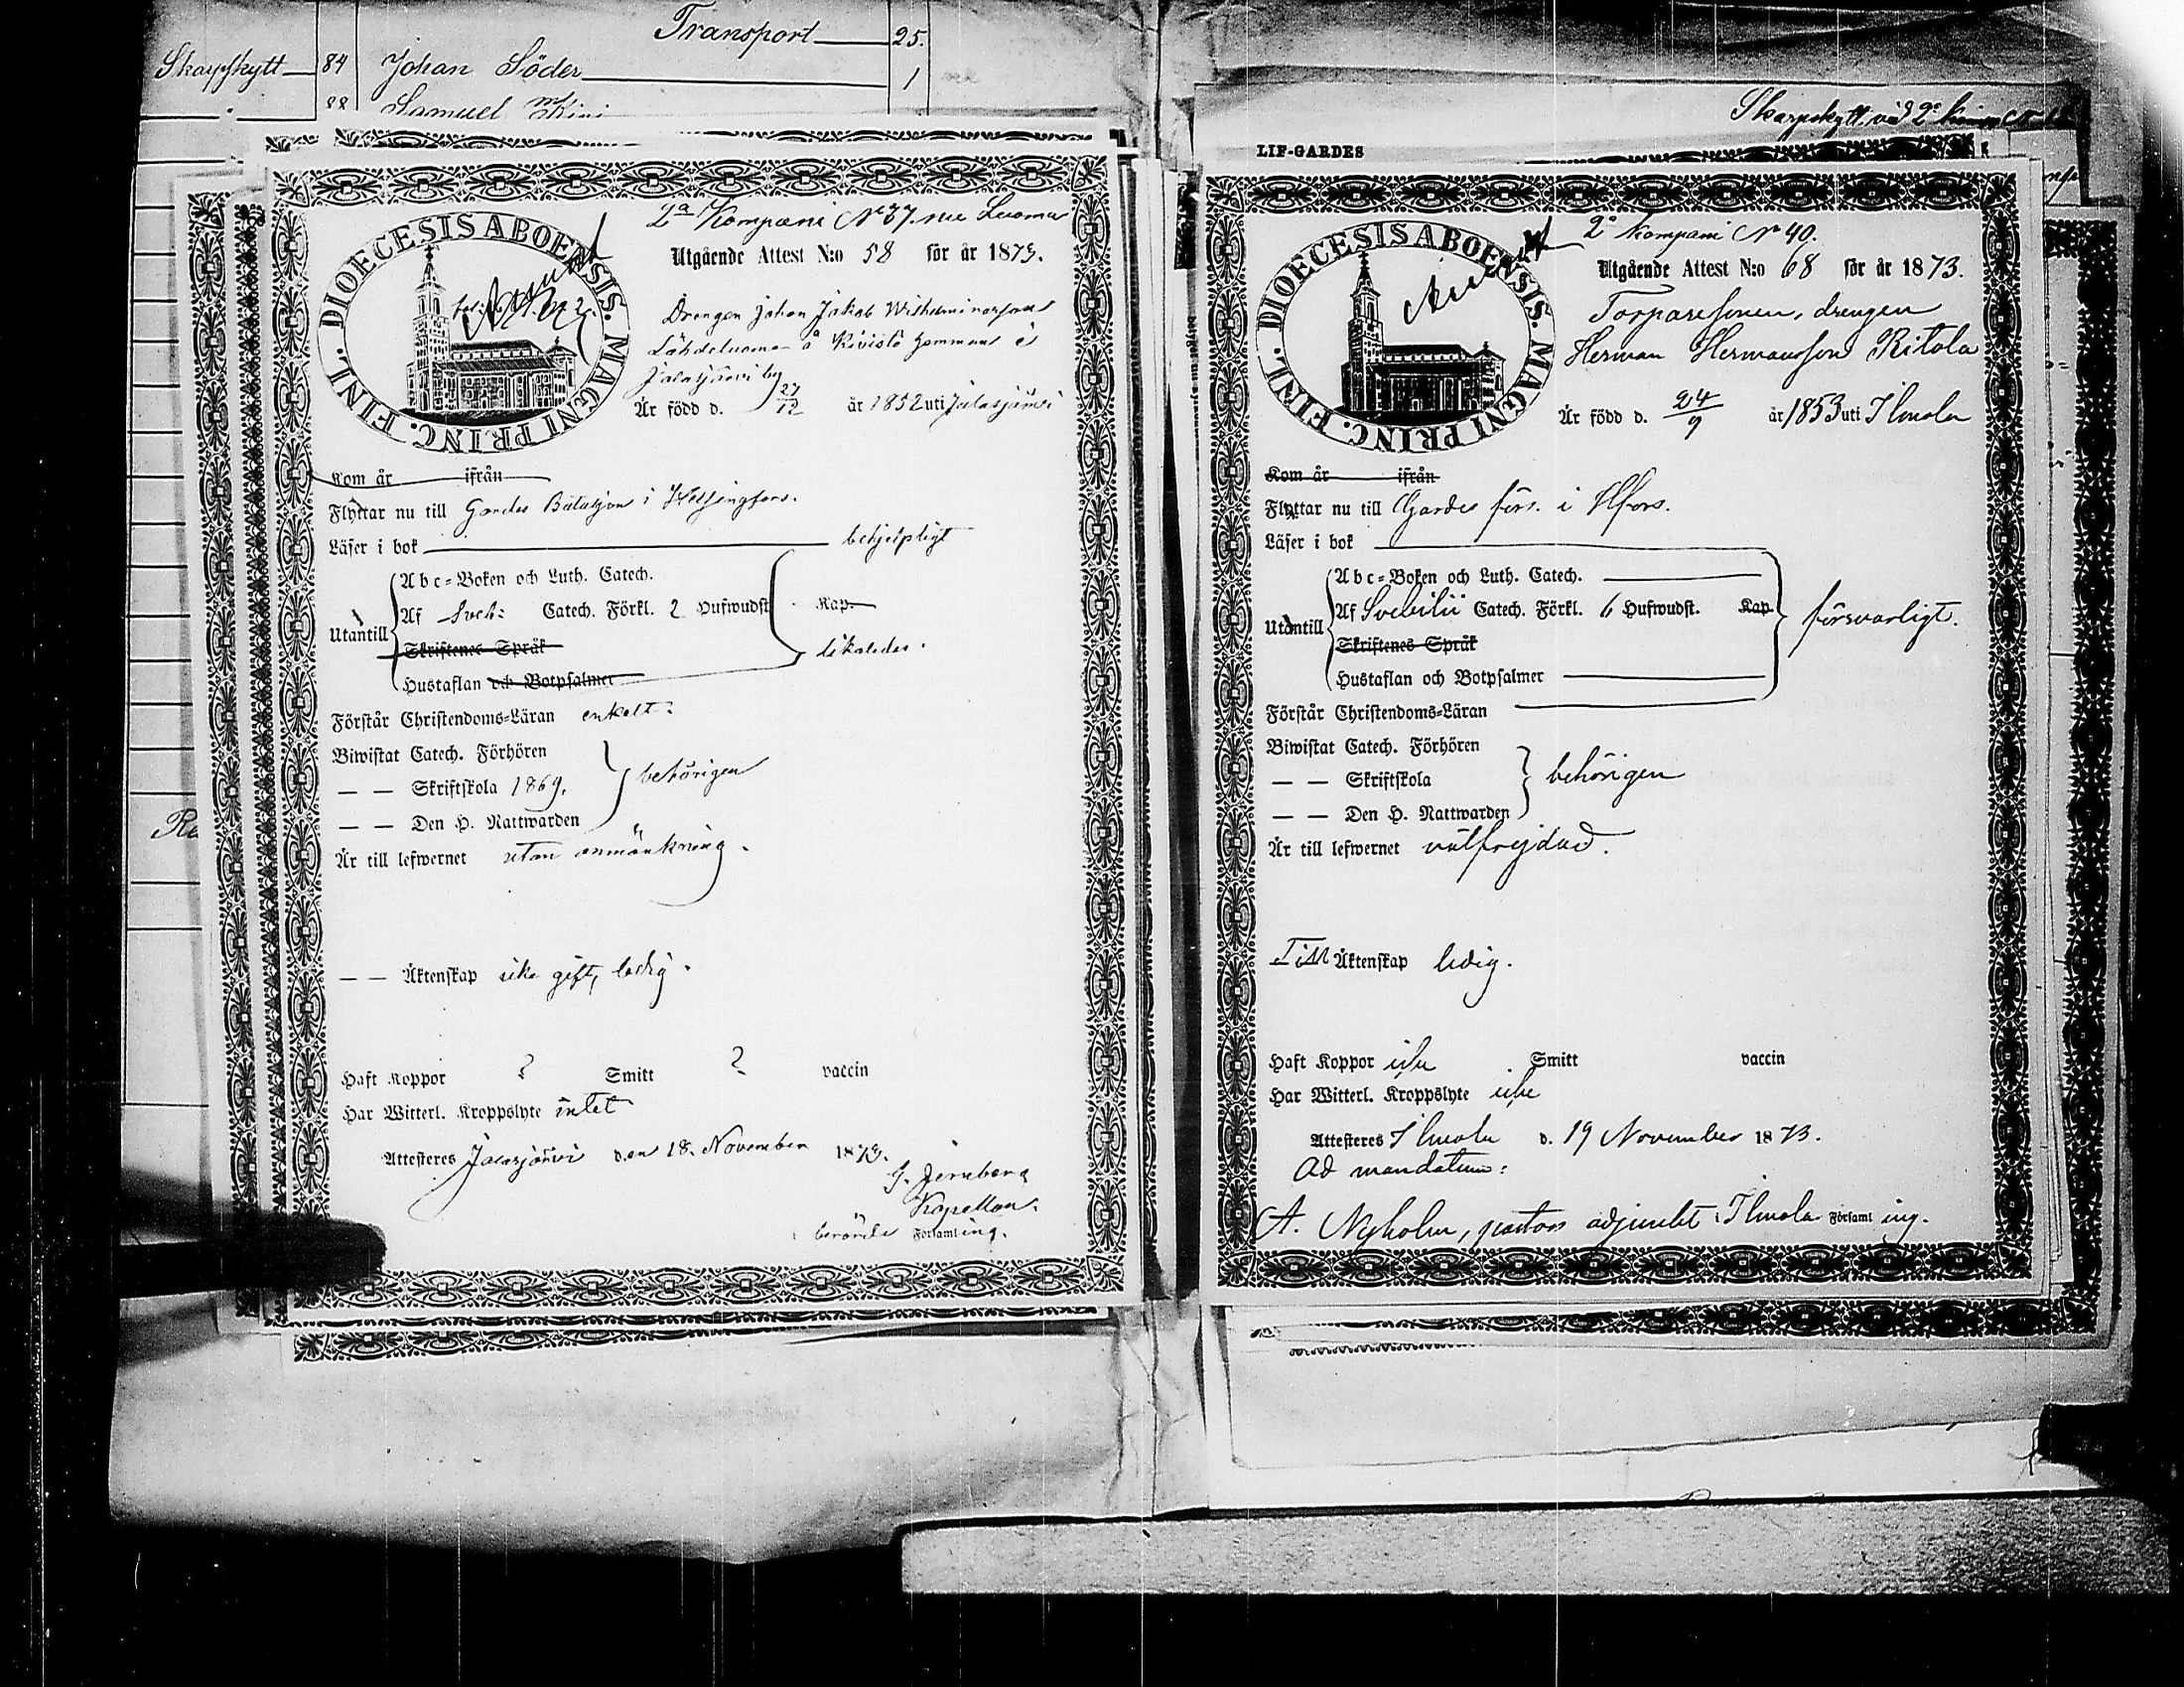 Transport 25.
Skarpskytt 84 Johan Söder 1
88 Samuel Kivi
2a Kompani No 37. nu Luoma
DIOECESIS ABOENSIS. MAGNI PRINC. FINL.
Utgående Attest N:o 58 för år 1873.
Drengen Johan Jakob Wilhelminasson
Lähdeluoma å Kivistö hemman i
Jalasjärvi by
Är född d. 27/12 år 1852 uti Jalasjärvi
Kom år ifrån
Flyttar nu till Gardes Bataljon i Helsingfors.
Läser i bok behjelpligt
Utantill
Abc-Boken och Luth. Catech.
Af Sveb: Catech. Förkl. 2 Hufwudst. Kap.
Skriftenes Språk
likaledes.
Hustaflan och Botpsalmer
Förstår Christendoms-Läran enkelt.
Biwistat Catech. Förhören
— — Skriftskola 1869. behörigen
— — Den H. Nattwarden
Är till lefwernet utan anmärkning.
— — Äktenskap icke gift, ledig.
Haft Koppor ? Smitt ? vaccin
Har Witterl. Kroppslyte intet
Attesteres Jalasjärvi den 18. November 1873.
G. Jernberg
Kapellan.
berörde Församling.
Skarpskytt vid 2a
LIF-GARDES
2a Kompani No 40.
DIOECESIS ABOENSIS. MAGNI PRINC. FINL.
Utgående Attest N:o 68 för år 1873.
Torparesonen, drengen
Herman Hermansson Ritola
Är född d. 24/9 år 1853 uti Ilmola
Kom år ifrån
Flyttar nu till Gardes förs. i Hfors.
Läser i bok
Utantill
Abc-Boken och Luth. Catech.
Af Svebilii Catech. Förkl. 6 Hufwudst. Kap. försvarligt.
Skriftenes Språk
Hustaflan och Botpsalmer
Förstår Christendoms-Läran
Biwistat Catech. Förhören
— — Skriftskola behörigen
— — Den H. Nattwarden
Är till lefwernet välfrejdad.
Till Äktenskap ledig.
Haft Koppor icke Smitt vaccin
Har Witterl. Kroppslyte icke
Attesteres Ilmola d. 19 November 1873.
Ad mandatum:
A. Nyholm, pastors adjunkt i Ilmola Församling.